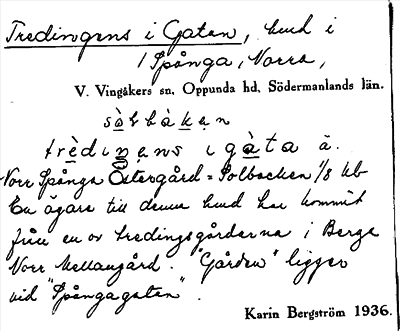 Tredingens i Gatan, hmd i
/ Spånga, Norra,
V. Vingåkers sn, Oppunda hd, Södermanlands län.
sò̀lbàkan
trèdiŋans i gàta ä.
Norr Spånga Östergård = Solbacken 1/8 hb
En ägare till denna hmd har kommit
från en av tredingsgårdarna i Berga
Norr Mellangård. "Gården" ligger
vid "Spångagatan".
Karin Bergström 1936.